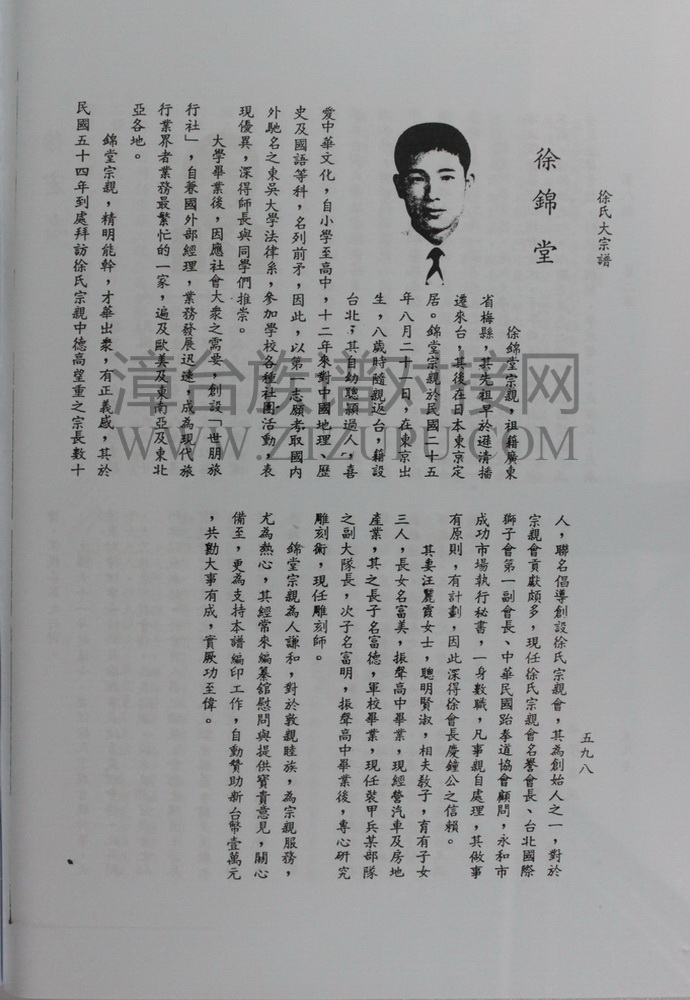 徐氏大宗譜
徐錦堂
徐錦堂宗親，祖籍廣東
省梅縣，其先祖早於遜清播
遷來台，其後在日本東京定
居。錦堂宗親於民國二十五
年八月二十一日，在東京出
生，八歲時隨親返台，籍設
台北；其自幼聰穎過人，喜
愛中華文化，自小學至高中，十二年來對中國地理、歷
史及國語等科，名列前矛，因此，以第一志願考取國內
外馳名之東吳大學法律系，參加學校各種社團活動，表
現優異，深得師長與同學們推崇。
大學畢業後，因應社會大衆之需要，創設「世朋旅
行社」，自兼國外部經理，業務發展迅速，成為現代旅
行業界者業務最繁忙的一家，遍及歐美及東南亞及東北
亞各地。
錦堂宗親，精明能幹，才華出衆，有正義感，其於
民國五十四年到處拜訪徐氏宗親中德高望重之宗長數十
人，聯名倡導創設徐氏宗親會，其為創始人之一，對於
宗親會貢獻頗多，現任徐氏宗親會名譽會長、台北國際
獅子會第一副會長、中華民國跆拳道協會顧問，永和市
成功市場執行秘書，一身數職，凡事親自處理，其做事
有原則，有計劃，因此深得徐會長慶鐘公之信賴。
其妻汪麗霞女士，聰明賢淑，相夫敎子，育有子女
三人，長女名富美，振聲高中畢業，現經營汽車及房地
產業，其之長子名富德，軍校畢業，現任裝甲兵某部隊
之副大隊長，次子名富明，振聲高中畢業後，專心研究
雕刻術，現任雕刻師。
錦堂宗親為人謙和，對於敦親睦族，為宗親服務，
尤為熱心，其經常來編纂舘慰問與提供寶貴意見，關心
備至，更為支持本譜編印工作，自動贊助新台幣壹萬元
，共勷大事有成，實厥功至偉。
五九八
漳台族谱对接网
WWW.ZIZUPU.COM